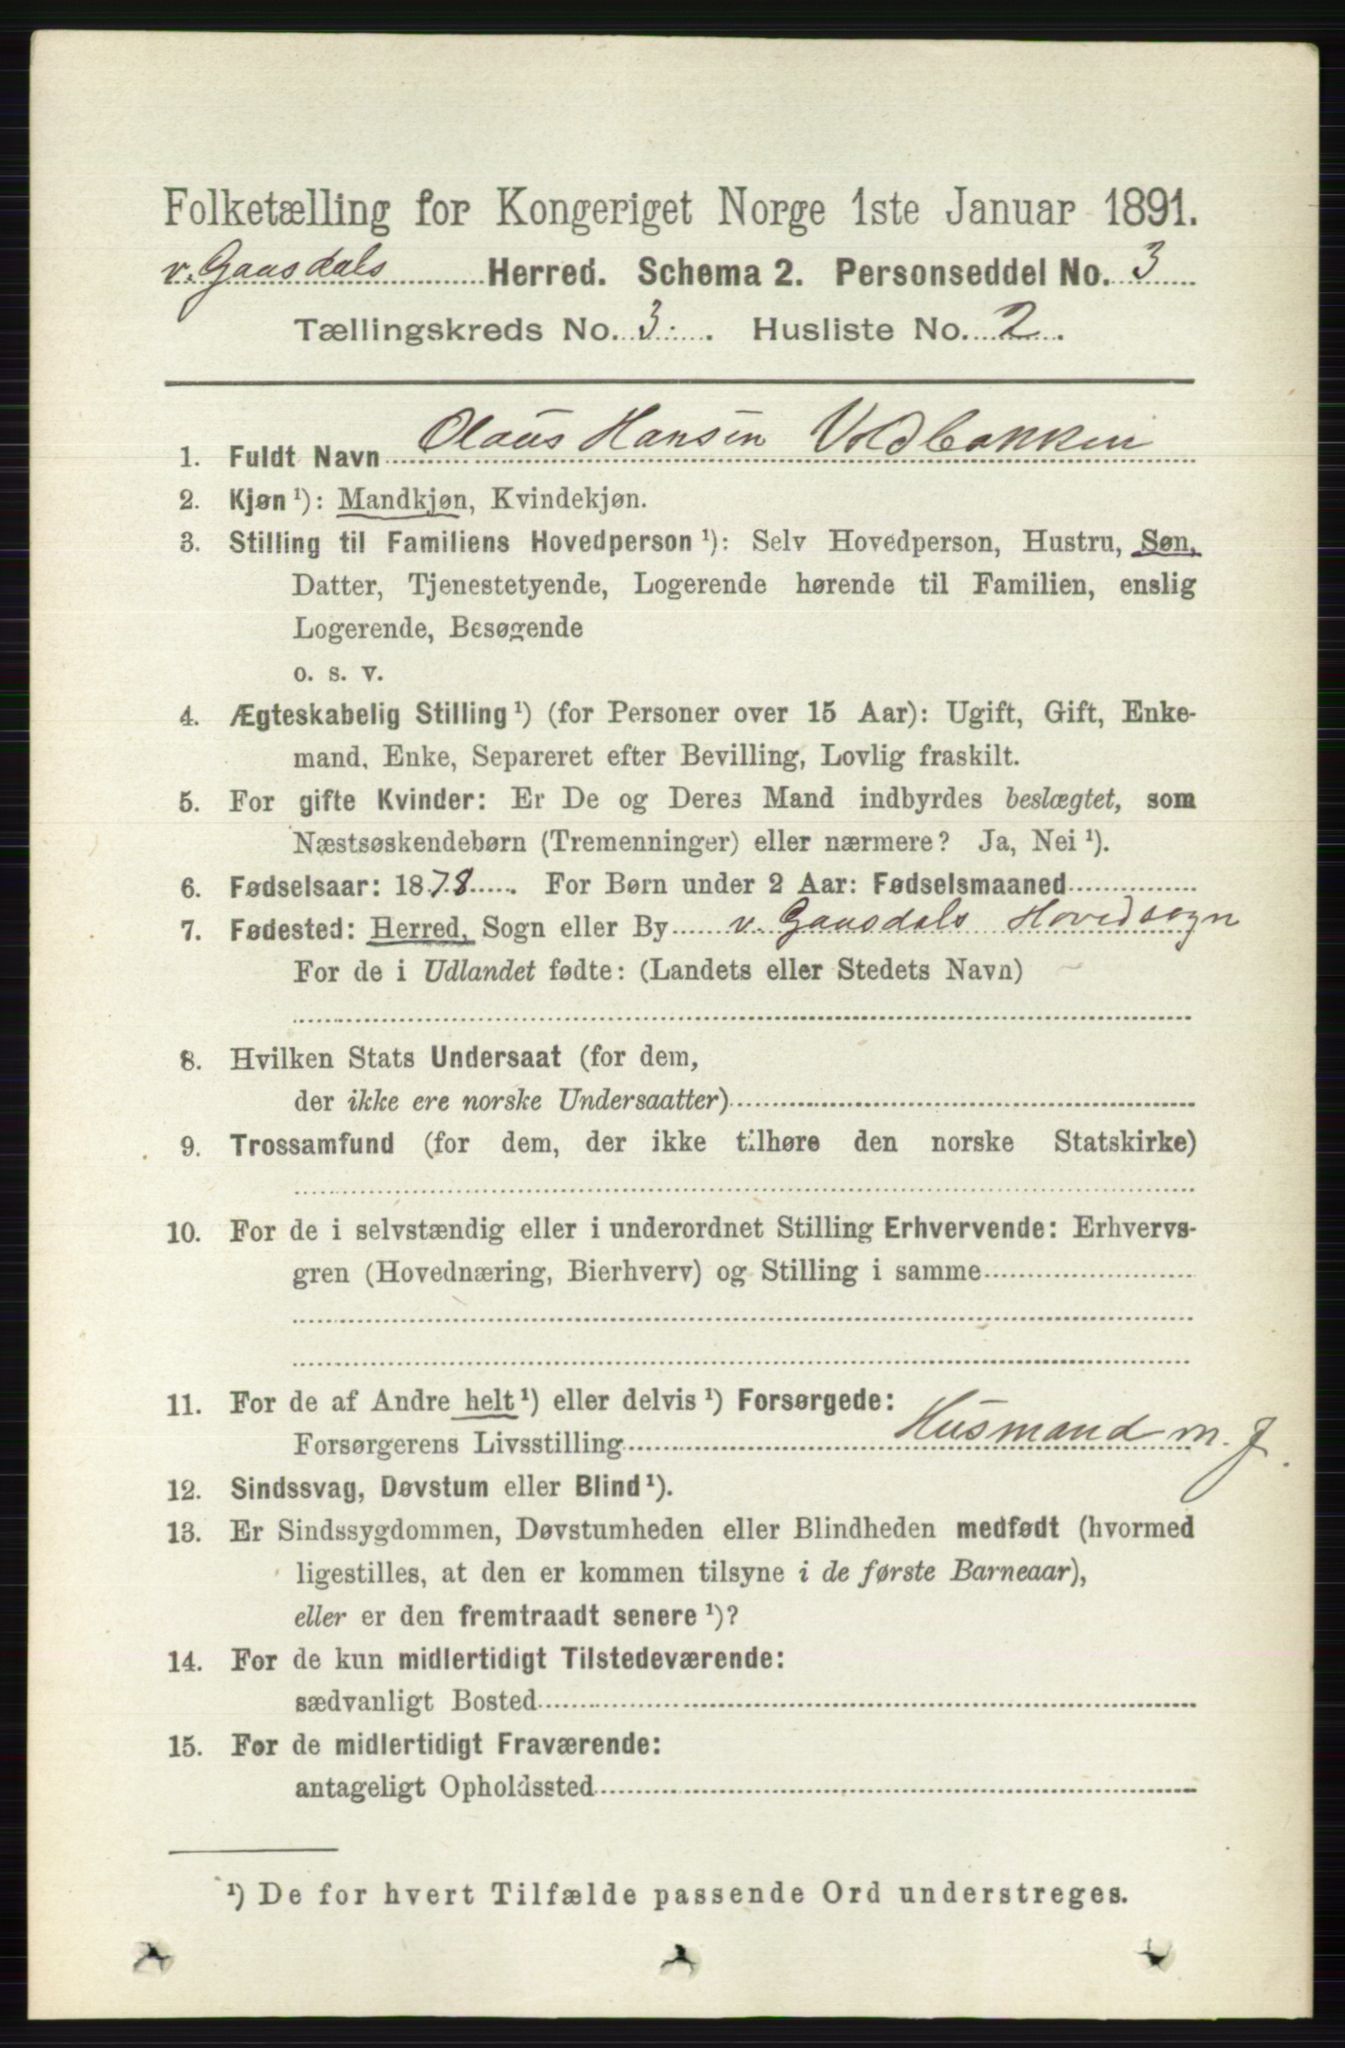 Folketælling for Kongeriget Norge 1ste Januar 1891.
v. Gausdals Herred. Schema 2. Personseddel No. 3
Tællingskreds No. 3. Husliste No. 2.
1. Fuldt Navn Olaus Hansen Voldbakken
2. Kjøn ¹): Mandkjøn, Kvindekjøn.
3. Stilling til Familiens Hovedperson ¹): Selv Hovedperson, Hustru, Søn,
Datter, Tjenestetyende, Logerende hørende til Familien, enslig
Logerende, Besøgende
o. s. v.
4. Ægteskabelig Stilling ¹) (for Personer over 15 Aar): Ugift, Gift, Enke-
mand, Enke, Separeret efter Bevilling, Lovlig fraskilt.
5. For gifte Kvinder: Er De og Deres Mand indbyrdes beslægtet, som
Næstsøskendebørn (Tremenninger) eller nærmere? Ja, Nei ¹).
6. Fødselsaar: 1878. For Børn under 2 Aar: Fødselsmaaned
7. Fødested: Herred, Sogn eller By v. Gausdals Hovedsogn
For de i Udlandet fødte: (Landets eller Stedets Navn)
8. Hvilken Stats Undersaat (for dem,
der ikke ere norske Undersaatter)
9. Trossamfund (for dem, der ikke tilhøre den norske Statskirke)
10. For de i selvstændig eller i underordnet Stilling Erhvervende: Erhvervs-
gren (Hovednæring, Bierhverv) og Stilling i samme
11. For de af Andre helt ¹) eller delvis ¹) Forsørgede:
Forsørgerens Livsstilling Husmand m. J.
12. Sindssvag, Døvstum eller Blind ¹).
13. Er Sindssygdommen, Døvstumheden eller Blindheden medfødt (hvormed
ligestilles, at den er kommen tilsyne i de første Barneaar),
eller er den fremtraadt senere ¹)?
14. For de kun midlertidigt Tilstedeværende:
sædvanligt Bosted
15. For de midlertidigt Fraværende:
antageligt Opholdssted
¹) De for hvert Tilfælde passende Ord understreges.